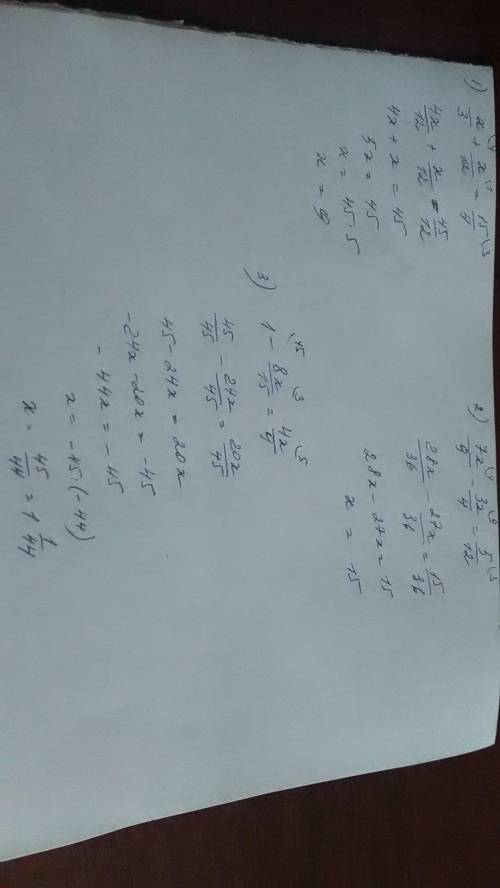 1) x/3 (4 + x/12 (1 = 15/4 (3
4x/12 + x/12 = 45/12
4x + x = 45
5x = 45
x = 45:5
x = 9
2) 7x/9 (4 - 3x/4 (9 = 5/12 (3
28x/36 - 27x/36 = 15/36
28x - 27x = 15
x = 15
3) 1 (45 - 8x/15 (3 = 4x/9 (5
45/45 - 24x/45 = 20x/45
45 - 24x = 20x
-24x - 20x = -45
-44x = -45
x = -45:(-44)
x = 45/44 = 1 1/44